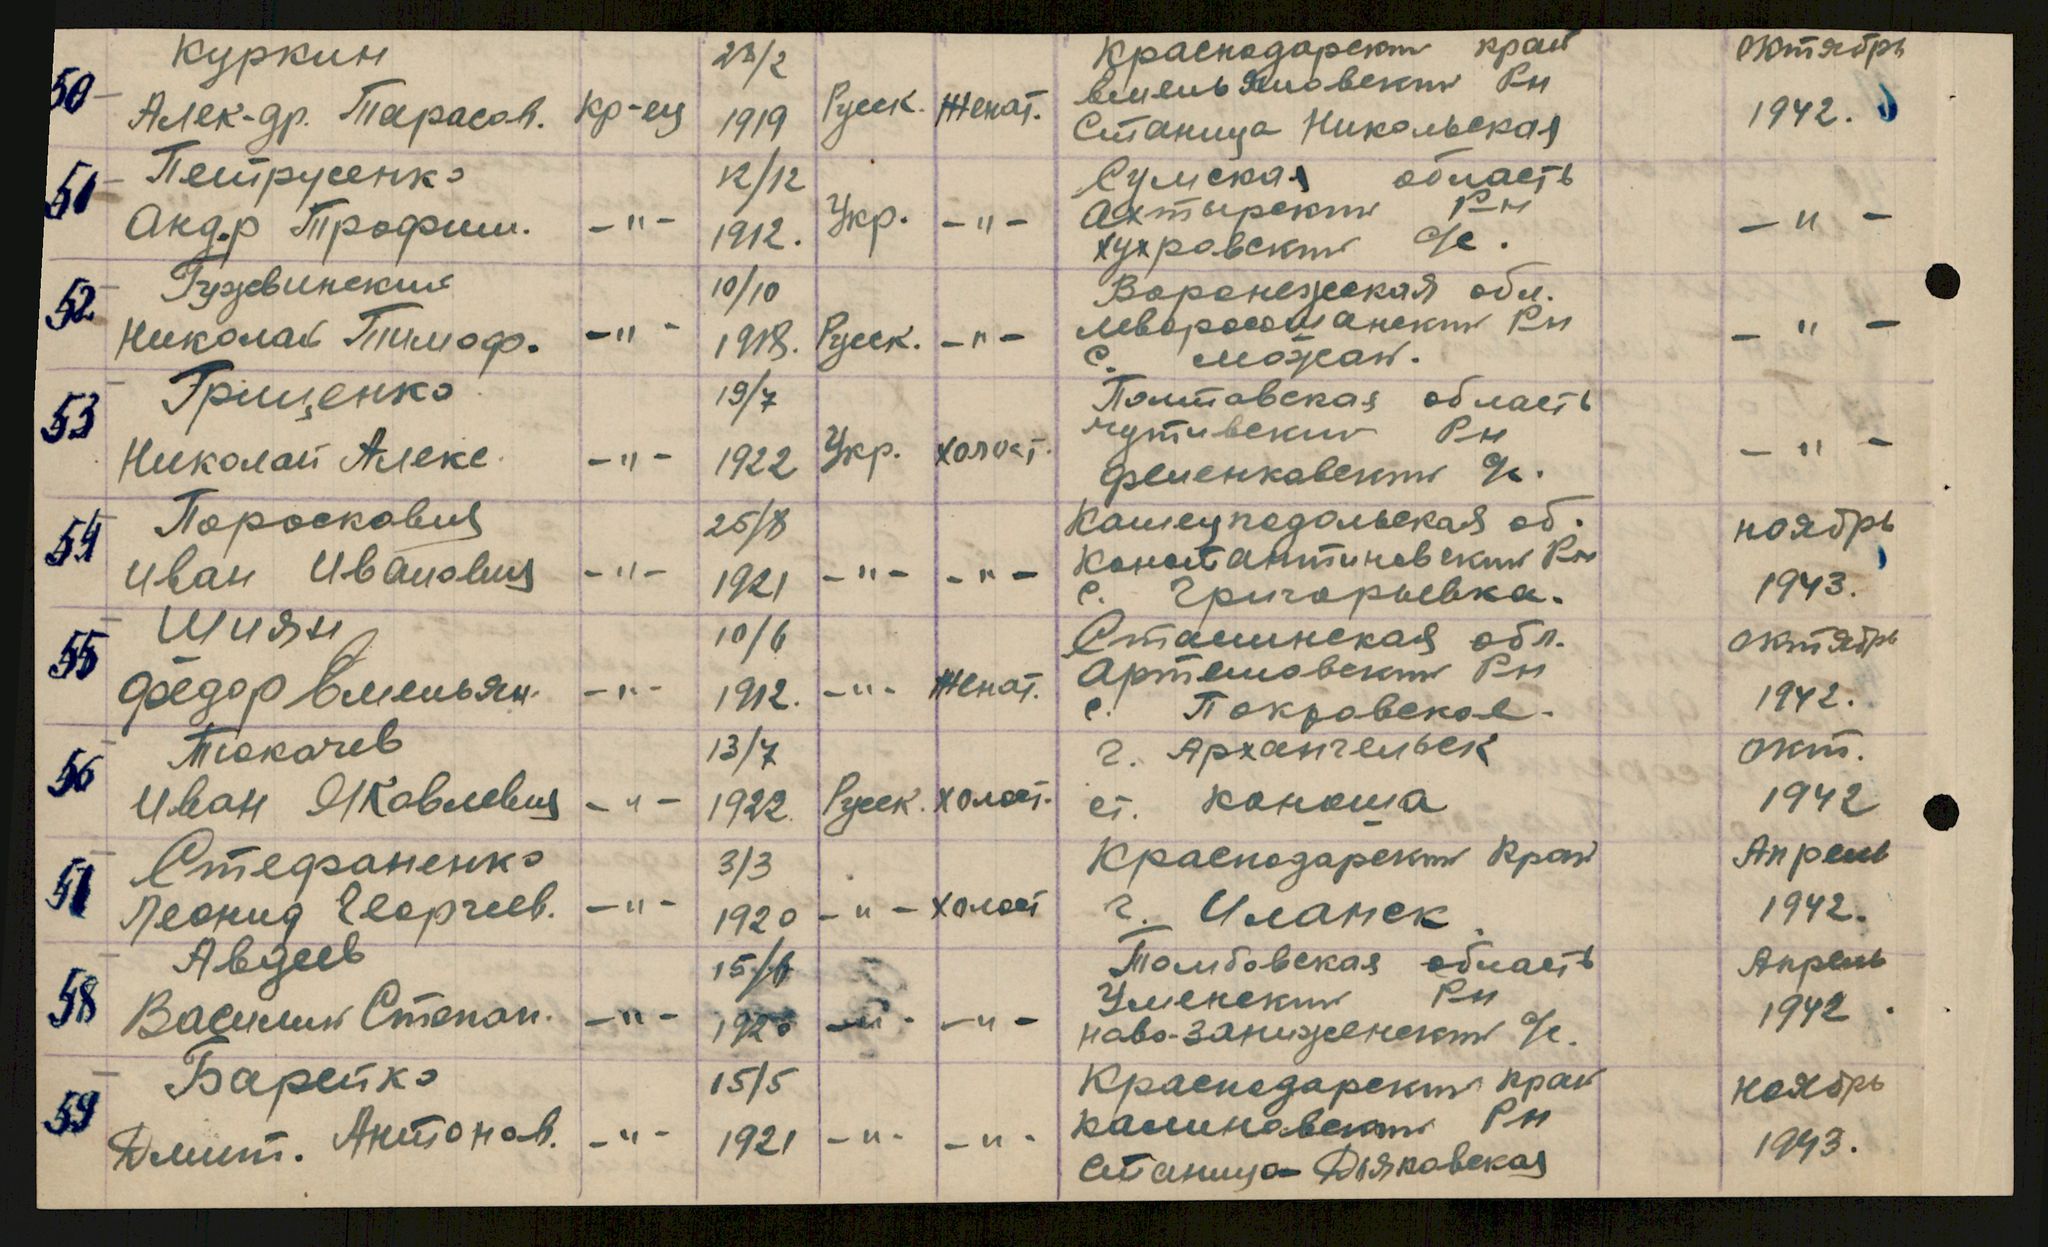 Куркин 23/2 Краснодарский край октябрь
50 Алек-др. Тарасов. Кр-ец 1919 Русск. Женат. Емельяновский Рн 1942.
Станица Никольская
Петрусенко 12/12 Сумская область
51 Анд.р Трофим. -"- 1912. Укр. -"- Ахтырский Рн -"-
хухровский с/с.
Гужвинский 10/10 Воронежская обл.
52 Николай Тимоф. -"- 1918. Русск. -"- Леворосошанский Рн -"-
с. можай.
Грищенко 19/7 Полтавская область
53 Николай Алекс. -"- 1922 Укр. холост. чутивский Рн -"-
фененкавский с/с.
Пороскович 25/8 Камецподольская об. ноябрь
54 Иван Иванович -"- 1921 -"- -"- Константиновский Рн 1943.
с. Григорьевка.
Шиян 10/6 Сталинская обл. октябрь
55 Фёдор Емельян. -"- 1912. -"- Женат. Артемовский Рн 1942.
с. Покровское.
Токачев 13/7 г. Архангельск окт.
56 Иван Яковлевич -"- 1922. Русск. холост. ст. коноша 1942
Стефаненко 3/3 Краснодарский край Апрель
57 Леонид Георгиев. -"- 1920 -"- холост г. Иланск 1942.
Авдеев 15/6 Томбовская область Апрель
58 Василий Степан. -"- 1920 -"- -"- Уменский Рн 1942.
ново-занижненский с/с.
Барейко 15/5 Краснодарский край ноябрь
59 Дмит. Антонов. -"- 1921 -"- -"- калиновский Рн 1943.
станица Дляковская